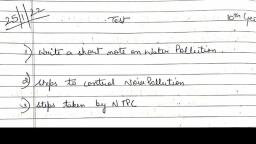 25/1/22
Test
10th
1) Write a short note on Water Pollution.
2) steps to control Noise Pollution
3) steps taken by NTPC